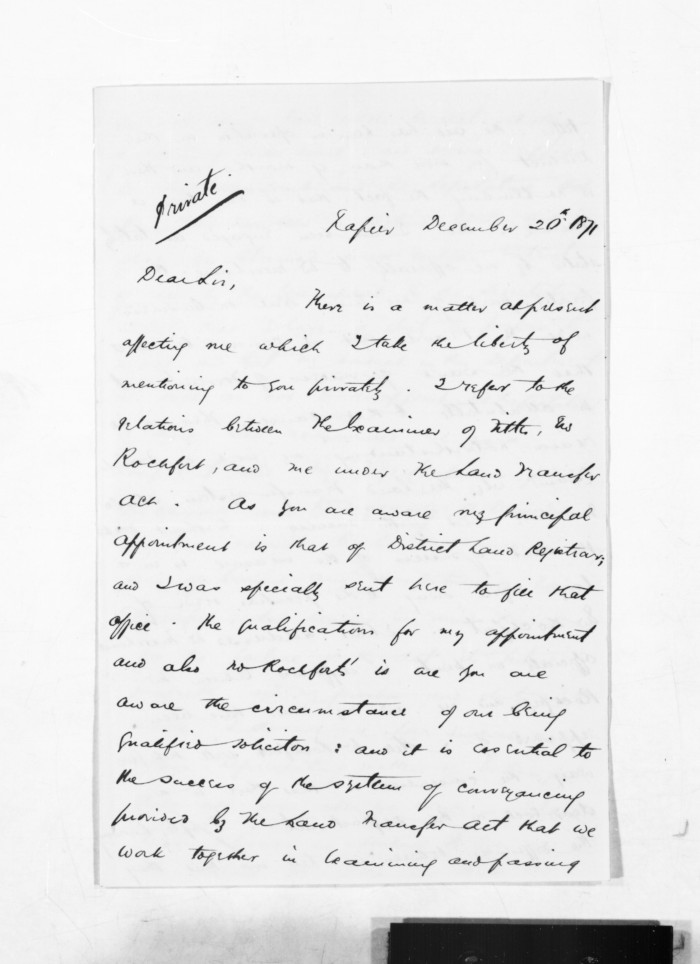 Private.
Napier December 20th 1871
Dear Sir,
There is a matter at present
affecting me which I take the liberty of
mentioning to you privately. I refer to the
relations between the Examiner of Titles, Mr
Rochfort, and me under the Land Transfer
Act. As you are aware my principal
appointment is that of District Land Registrar;
and I was specially sent here to fill that
office. The qualifications for my appointment
and also Mr Rochfort's is are you are
aware the circumstance of our being
qualified solicitors: and it is essential to
the success of the system of conveyancing
provided by the Land Transfer Act that we
work together in examining and passing